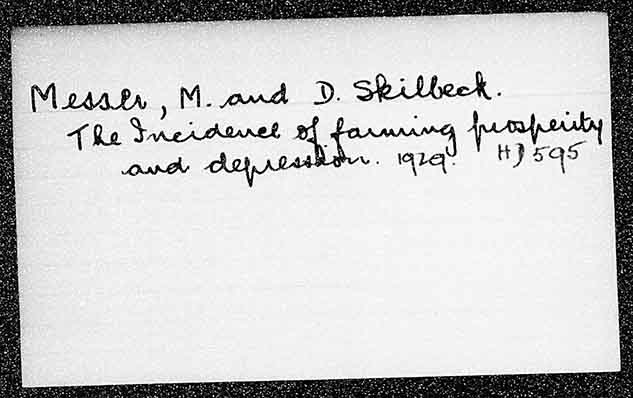 Messer, M. and D. Skilbeck.
The Incidence of farming prosperity
and depression. 1929. HD 595